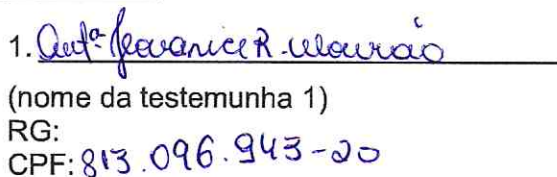 1. Antª Jeovanice R. Mourão
(nome da testemunha 1)
RG:
CPF: 813.096.943-20